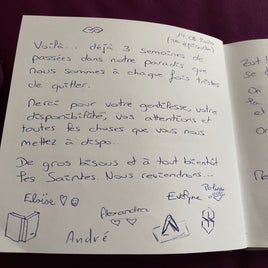 Voilà... déjà 3 semaines de
passées dans notre paradis que
nous sommes à chaque fois tristes
de quitter.
Merci pour votre gentillesse, votre
disponibilité, vos attentions et
toutes les choses que vous nous
mettez à dispo.
De gros bisous et à tout bientôt
les Saintes. Nous reviendrons...
Eloïse
Alexandra
Evelyne
André